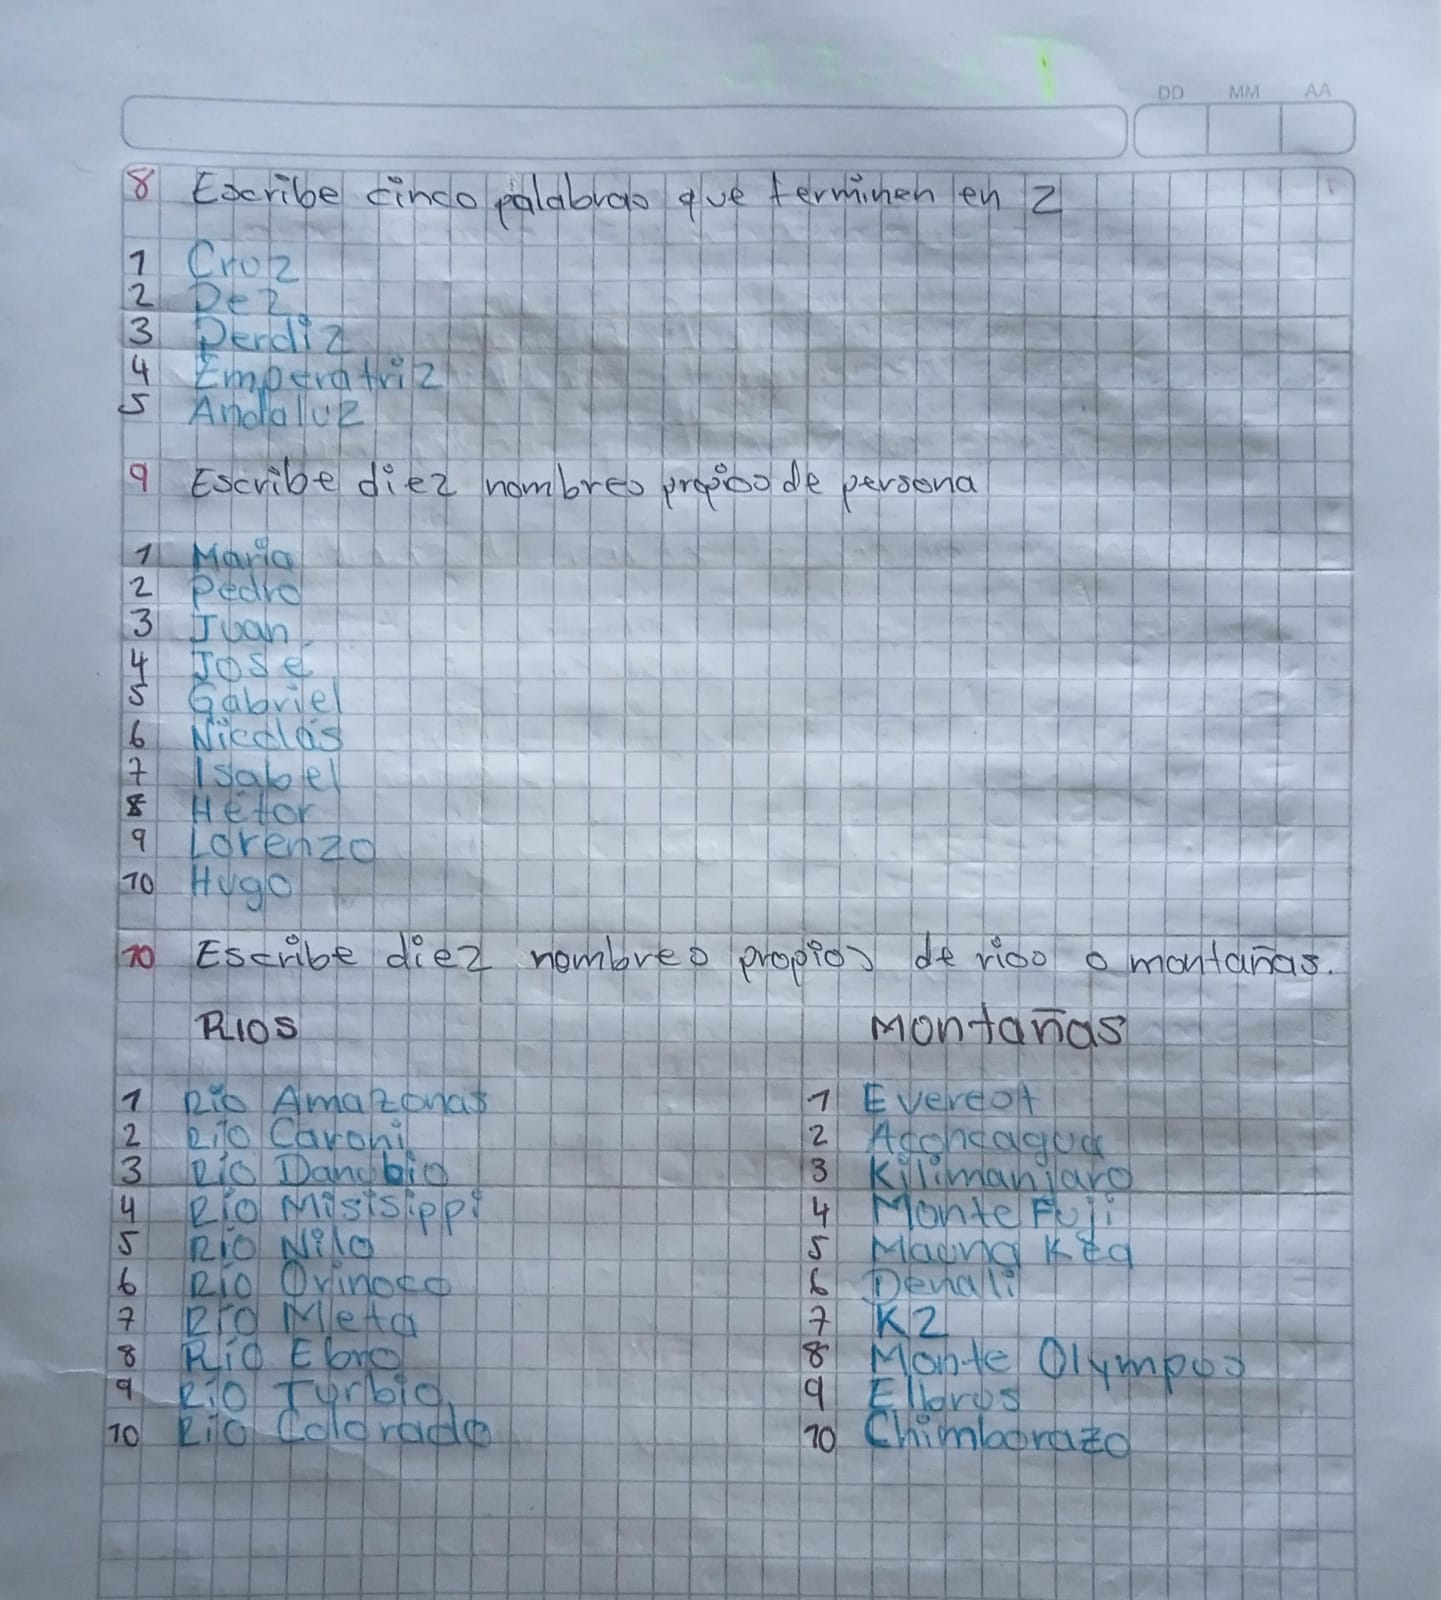 DD MM AA
8 Escribe cinco palabras que terminen en z
1 Cruz
2 Pez
3 Perdiz
4 Emperatriz
5 Andaluz
9 Escribe diez nombres propios de persona
1 María
2 Pedro
3 Juan
4 José
5 Gabriel
6 Nicolás
7 Isabel
8 Hétor
9 Lorenzo
10 Hugo
10 Escribe diez nombres propios de rios o montañas.
RIOS Montañas
1 Río Amazonas 1 Everest
2 Río Caroni 2 Aconcagua
3 Río Danubio 3 Kilimanjaro
4 Río Misisippi 4 Monte Fuji
5 Río Nilo 5 Mauna Kea
6 Río Orinoco 6 Denali
7 Río Meta 7 K2
8 Río Ebro 8 Monte Olympus
9 Río Turbio 9 Elbrus
10 Río Colorado 10 Chimborazo